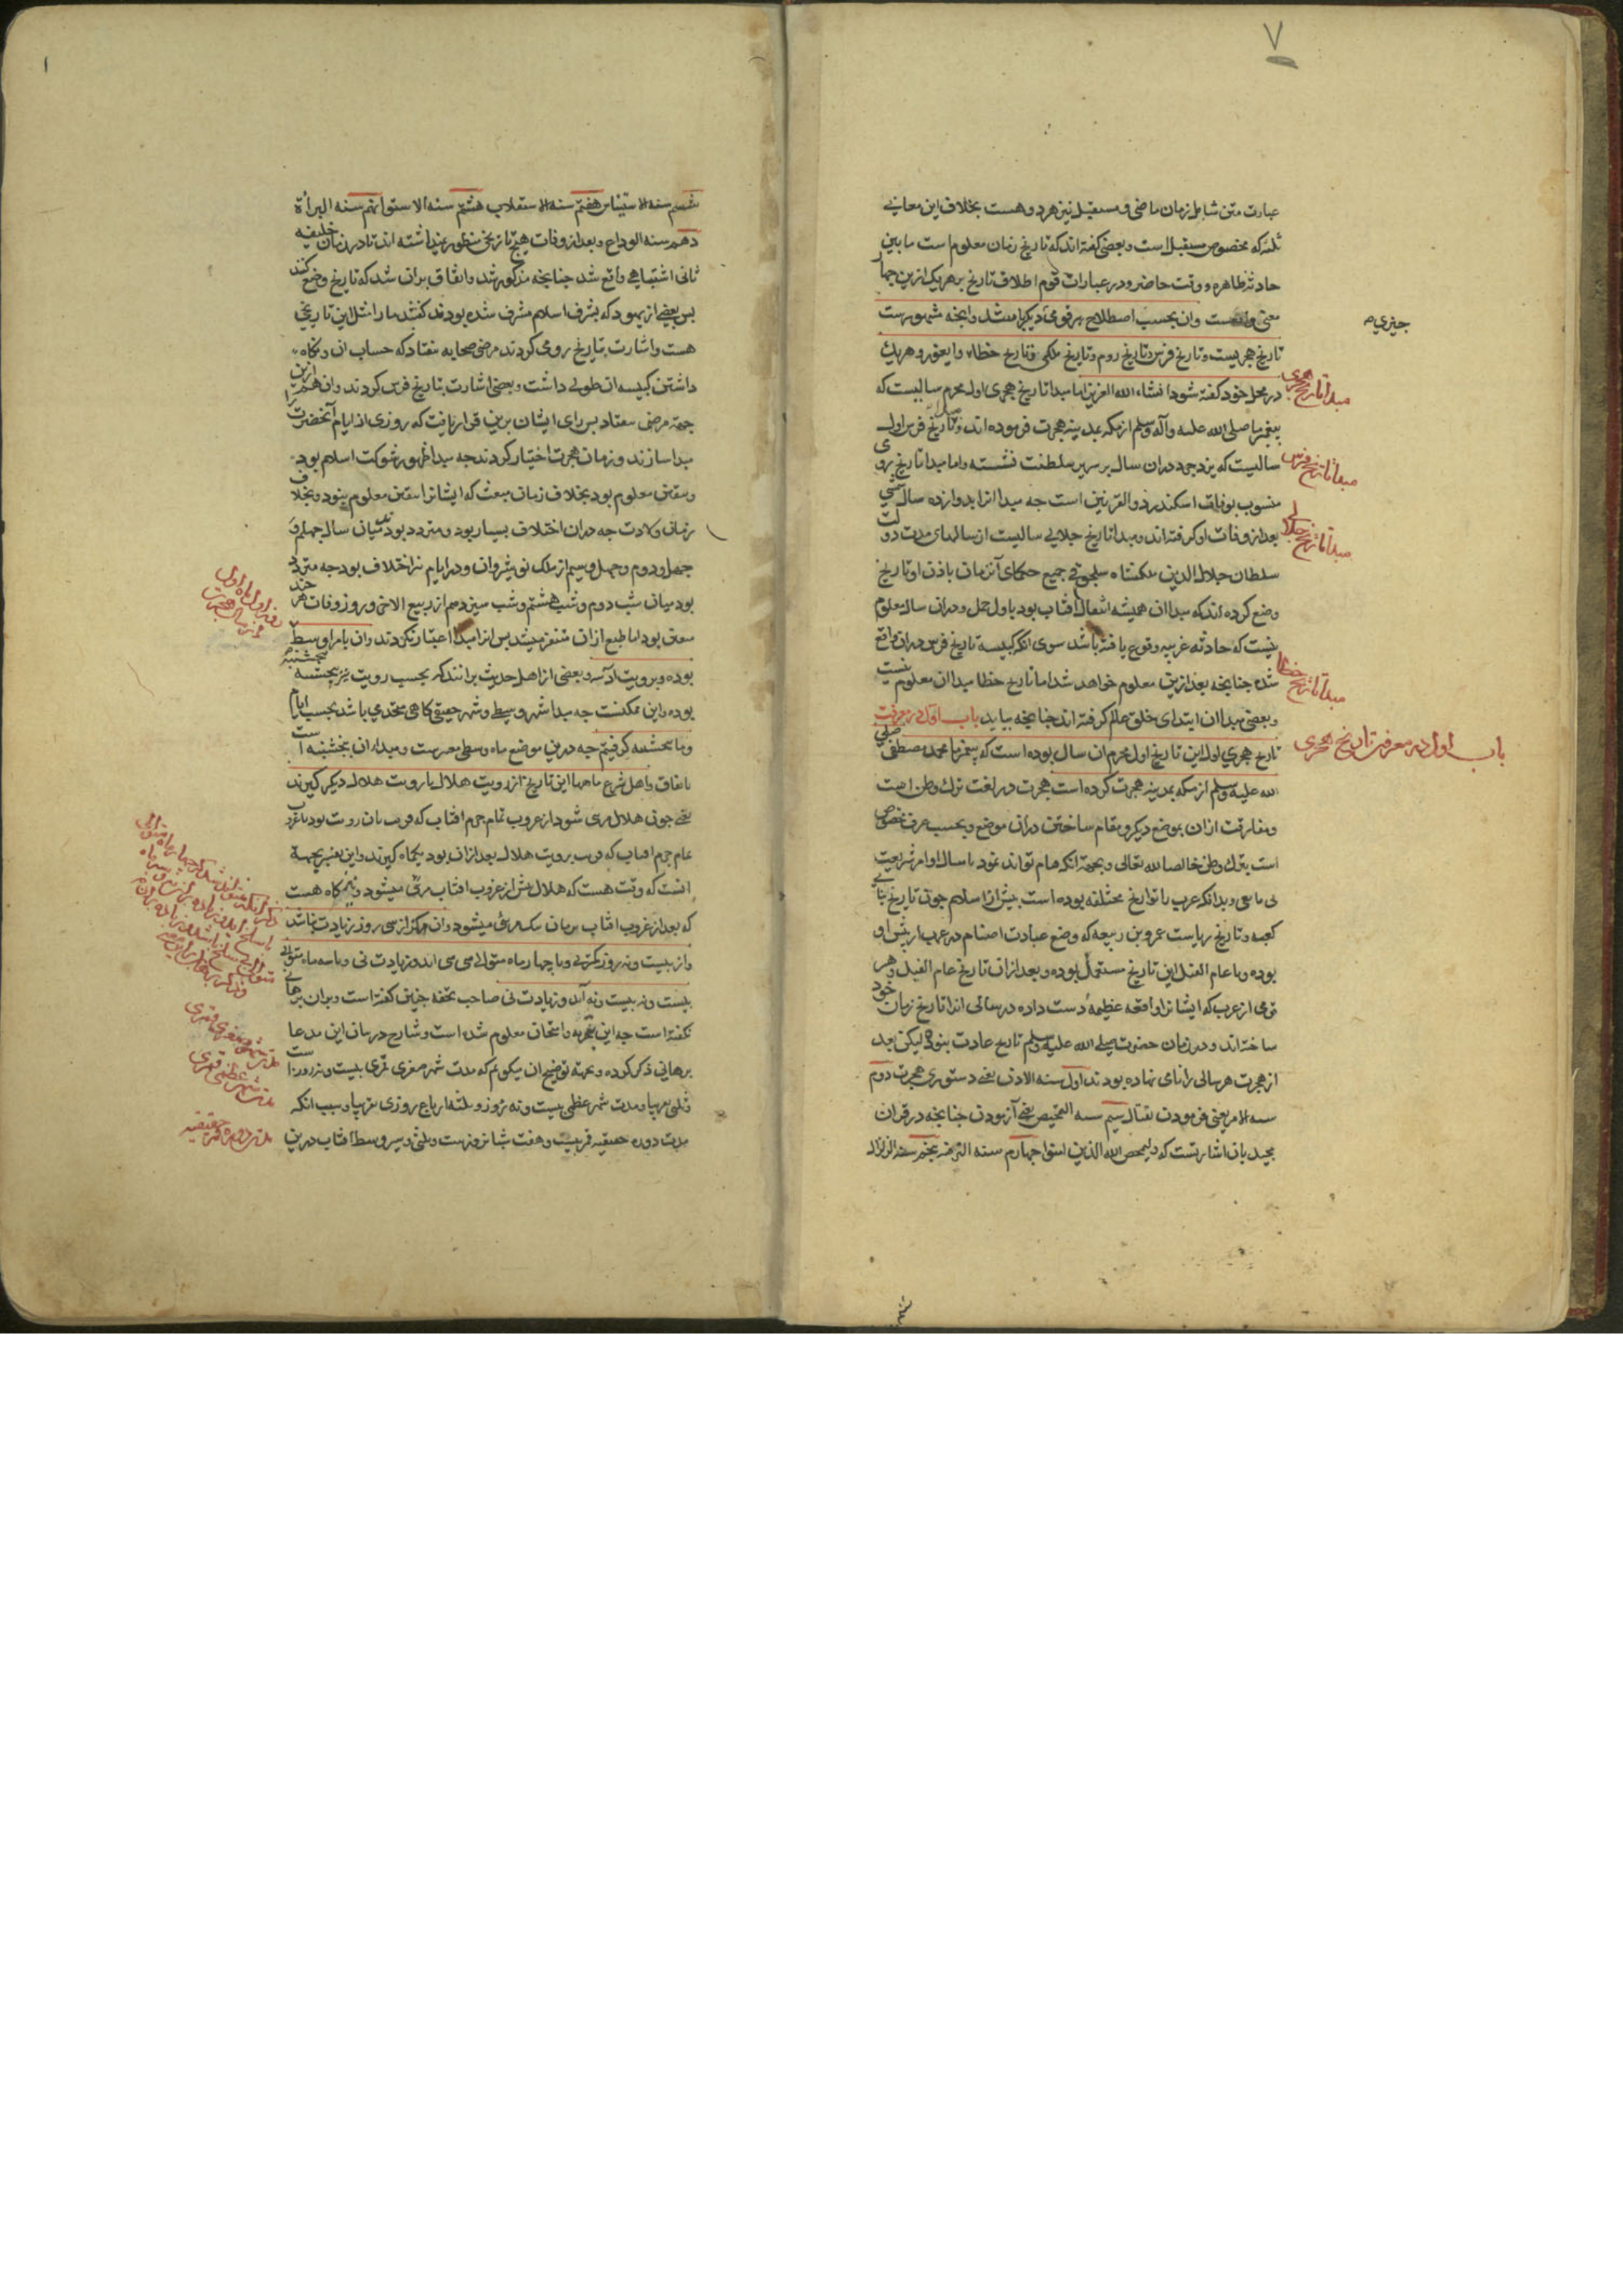 ٧
عبارت متن شامل زمان ماضی و مستقبل نیز هر دو هست بخلاف این معانی
ثلثه که مخصوص مستقبل است و بعضی کفته اند که تاریخ زمان معلوم است ما بین
حادثه ظاهره و وقت حاضر و در عبارات قوم اطلاق تاریخ بر هر یک ازین چهار
معنی واقعست وان بحسب اصطلاح هر قومی دیکر باشد وانچه مشهورست
تاریخ هجریست و تاریخ فرس و تاریخ روم و تاریخ ملکی و تاریخ خطاء وایغور و هر یک
در محل خود کفته شود انشاء الله العزیز اما مبدا تاریخ هجری اول محرم سالیست که
پیغمبر ما صلی الله علیه وآله وسلم از مکه بمدینه هجرت فرموده اند و تاریخ فرس اول
سالیست که یزدجرد دران سال بر سریر سلطنت نشسته واما مبدا تاریخ رومی
منسوب بوفات اسکندر ذو القرنین است چه مبدا انرا بدوازده سال شمسی
بعد از وفات او کرفته اند و مبدا تاریخ جلالی سالیست از سالهای مدت دولت
سلطان جلال الدین ملکشاه سلجوقی جمیع حکمای آنزمان باذن او تاریخ
وضع کرده اند که مبدا ان همیشه انتقال افتاب بود باول حمل و دران سال معلوم
نیست که حادثه غریبه وقوع یافته باشد سوی انکه کبیسه تاریخ فرس دران واقع
شده چنانچه بعد ازین معلوم خواهد شد اما تاریخ خطا مبدا ان معلوم نیست
و بعضی مبدا ان ابتدای خلق عالم کرفته اند چنانچه بیاید باب اول در معرفت
تاریخ هجری اول این تاریخ اول محرم ان سال بوده است که پیغمبر ما محمد مصطفی صلی
الله علیه وسلم از مکه بمدینه هجرت کرده است هجرت در لغت ترک وطن است
و مفارقت ازان بموضع دیکر و مقام ساختن دران موضع و بحسب عرف مخصوص
است بترک وطن خالصا لله تعالی و بجهة انکه مقام تواند نمود باسال اوامر شریعت
بی مانعی و بدانکه عرب را تواریخ مختلفه بوده است پیش از اسلام چون تاریخ بنای
کعبه و تاریخ ریاست عمرو بن ربیعه که وضع عبادت اصنام در عرب از پیش او
بوده و تا عام الفیل این تاریخ مستعمل بوده و بعد ازان تاریخ عام الفیل و هر
قومی از عرب که ایشانرا واقعه عظیمه دست داده در سالی انرا تاریخ زمان خود
ساخته اند و در زمان حضرت صلی الله علیه وسلم تاریخ عادت نبود لیکن بعد
از هجرت هر سالی را نامی نهاده بودند اول سنه الاذن یعنی دستوری هجرت دوم
سنه الامر یعنی فرمودن بقتال سیم سنه التمحیص یعنی آزمودن چنانچه در قران
مجید بان اشارتست که ولیمحص الله الذین امنوا چهارم سنه الترفیه پنجم سنه الزلزال
مبدا تاریخ هجری
مبدا تاریخ فرس
مبدا تاریخ جلالی
مبدا تاریخ خطا
باب اول در معرفت تاریخ هجری
ششم سنه الاستیناس هفتم سنه الاستغلاب هشتم سنه الاستوا نهم سنه البراءة
دهم سنه الوداع و بعد از وفات هیچ تاریخ منظور نداشته اند تا در زمان خلیفه
ثانی اشتباهی واقع شد چنانچه مذکور شد واتفاق بران شد که تاریخ وضع کنند
پس بعضی از یهود که بشرف اسلام مشرف شده بودند کفتند ما را مثل این تاریخی
هست و اشارت بتاریخ رومی کردند مرضی صحابه نیفتاد که حساب ان و نکاه
داشتن کبیسه ان طولی داشت و بعضی اشارت بتاریخ فرس کردند وان هم ازین
جهة مرضی نیفتاد پس رای ایشان برین قرار یافت که روزی از ایام آنحضرت را
مبدا سازند و زمان هجرت اختیار کردند چه مبدا ظهور شوکت اسلام بود
و متعین معلوم بود بخلاف زمان مبعث که ایشانرا متعین معلوم نبود و بخلاف
زمان ولادت چه دران اختلاف بسیار بود و متردد بودند میان سال چهلم و
چهل و دوم و چهل و سیم از ملک نوشیروان و در ایام نیز اختلاف بود چه متردد
بود میان شب دوم و شب هشتم و شب سیزدهم از ربیع الاخر و روز وفات هر چند
معین بود اما طبع ازان متنفر میشد پس انرا مبدا اعتبار نکردند وان بامر اوسط پنجشنبه
بوده و برویت آدینه و بعضی از اهل حدیث برانند که بحسب رویت نیز پنجشنبه
بوده و این ممکنست چه مبدا شهر وسط و شهر حقیقی کاهی متحد می باشد بحسب ایام
و ما پنجشنبه کرفتیم چه درین موضع ماه وسطی معتبرست و مبدا ان پنجشنبه است
باتفاق و اهل شرع ماهها این تاریخ از رویت هلال تا رویت هلال دیکر کیرند
انست که وقت هست که هلال پیش از غروب افتاب مرئی میشود و کاه هست
که بعد از غروب افتاب بزمان مرئی میشود وان هرکز از سی روز زیادت نباشد
و از بیست و نه روز کمتر نی و تا چهار ماه متوالی سی سی اید و زیادت نی و تا سه ماه متوالی
بیست و نه بیست و نه آید و زیادت نی صاحب تحفه چنین کفته است و بران برهانی
نکفته است چه این بتجربه و امتحان معلوم شده است و شارح در بیان این مدعا
برهانی ذکر کرده و بجهة توضیح ان میکویم که مدت شهر صغری قمری بیست و نه روز است
و ثلثی تقریبا و مدت شهر عظمی بیست و نه روز و ثلثه ارباع روزی تقریبا و سبب انکه
مدت دوره حقیقیه قمر بیست و هفت شبانروزست و ثلثی و سیر وسط افتاب درین
مدت شهر عظمی قمری
مدت دوره قمر حقیقیه